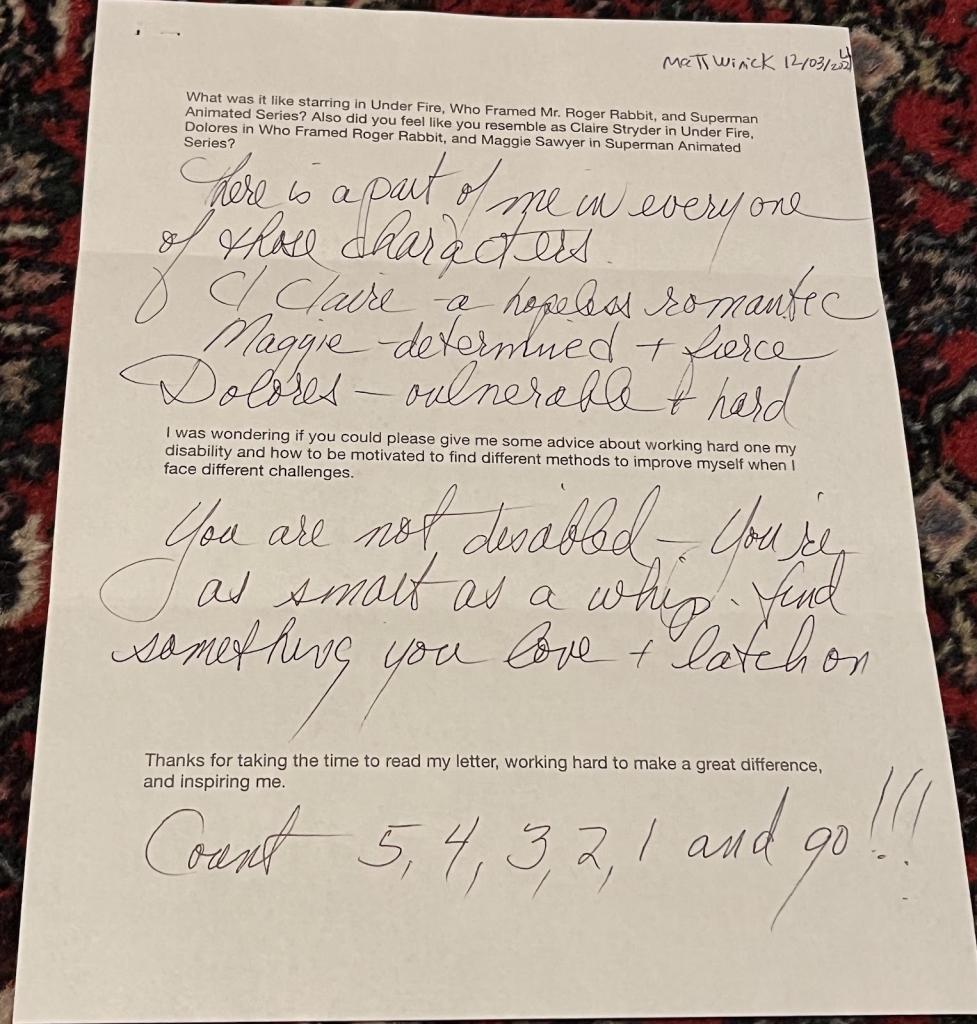 Matt Winick 12/03/2024
What was it like starring in Under Fire, Who Framed Mr. Roger Rabbit, and Superman
Animated Series? Also did you feel like you resemble as Claire Stryder in Under Fire,
Dolores in Who Framed Roger Rabbit, and Maggie Sawyer in Superman Animated
Series?
There is a part of me in every one
of those characters.
Cl Claire - a hopeless romantic
Maggie - determined + fierce
Dolores - vulnerable + hard
I was wondering if you could please give me some advice about working hard one my
disability and how to be motivated to find different methods to improve myself when I
face different challenges.
You are not disabled - You're
as smart as a whip. find
something you love + latch on
Thanks for taking the time to read my letter, working hard to make a great difference,
and inspiring me.
Count 5, 4, 3, 2, 1 and go!!!